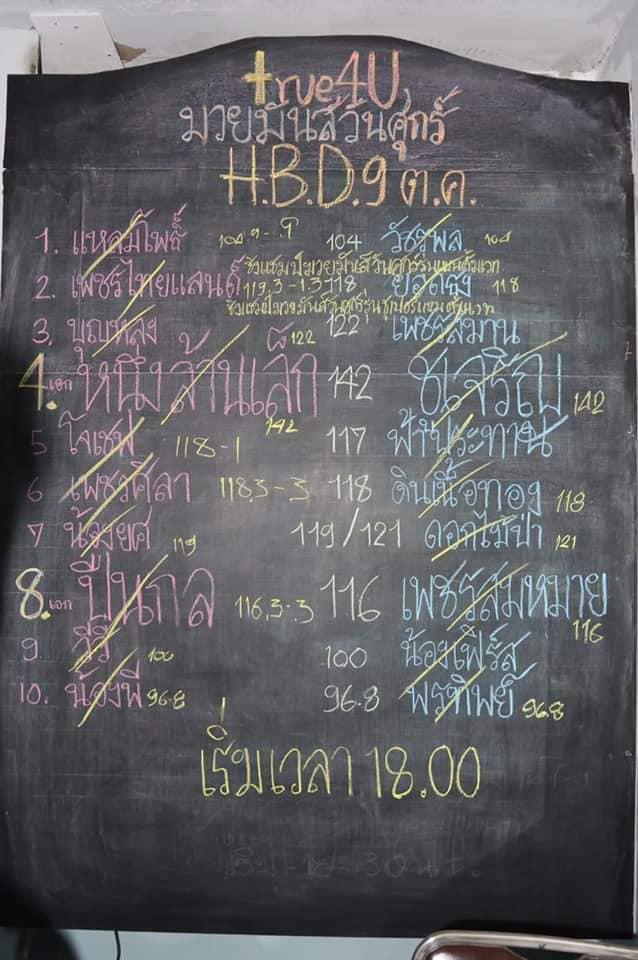 true4U
มวยมันส์วันศุกร์
H.B.D. 9 ต.ค.
1. แหลมโพธิ์ 104 วัชรพล 104
ชิงแชมป์มวยมันส์วันศุกร์รุ่น
2. เพชรไทยแลนด์ 119.3-1.3-118 ยอดธง 118
3. บุญหลง 122 122 เพชรสมาน
4. เอก หนึ่งล้านเล็ก 142 142 ช.เจริญ 142
5 โจเซฟ 118-1 117 ฟ้าประทาน
6 เพชรศิลา 118.3-3 118 ดินเนื้อทอง 118
7 น้องยศ 119 119/121 ดอกไม้ป่า 121
8. เอก ปืนกล 116.3-3 116 เพชรสมหมาย 116
9. วีวี่ 100 100 น้องเฟิร์ส
10. น้องพี 96.8 96.8 พรทิพย์ 96.8
เริ่มเวลา 18.00